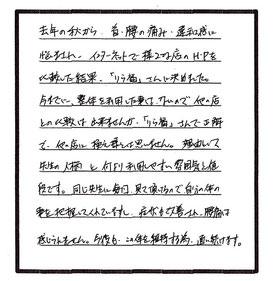 去年の秋から、首・腰の痛み・違和感に
悩まされ、インターネットで様々な店のH・Pを
比較した結果、「りら猫」さんに決めました。
今までに、整体を利用した事はないので他の店
との比較は出来ませんが、「りら猫」さんで正解
で、他の店に換える気は思いません。理由として
先生の人柄と何より利用しやすい雰囲気と値
段です。同じ先生に毎回、見て頂けるので自分の体の
事を把握してくれていますし、症状も改善され、腰痛は
感じられません。今後も、この体を維持する為、通い続けます。